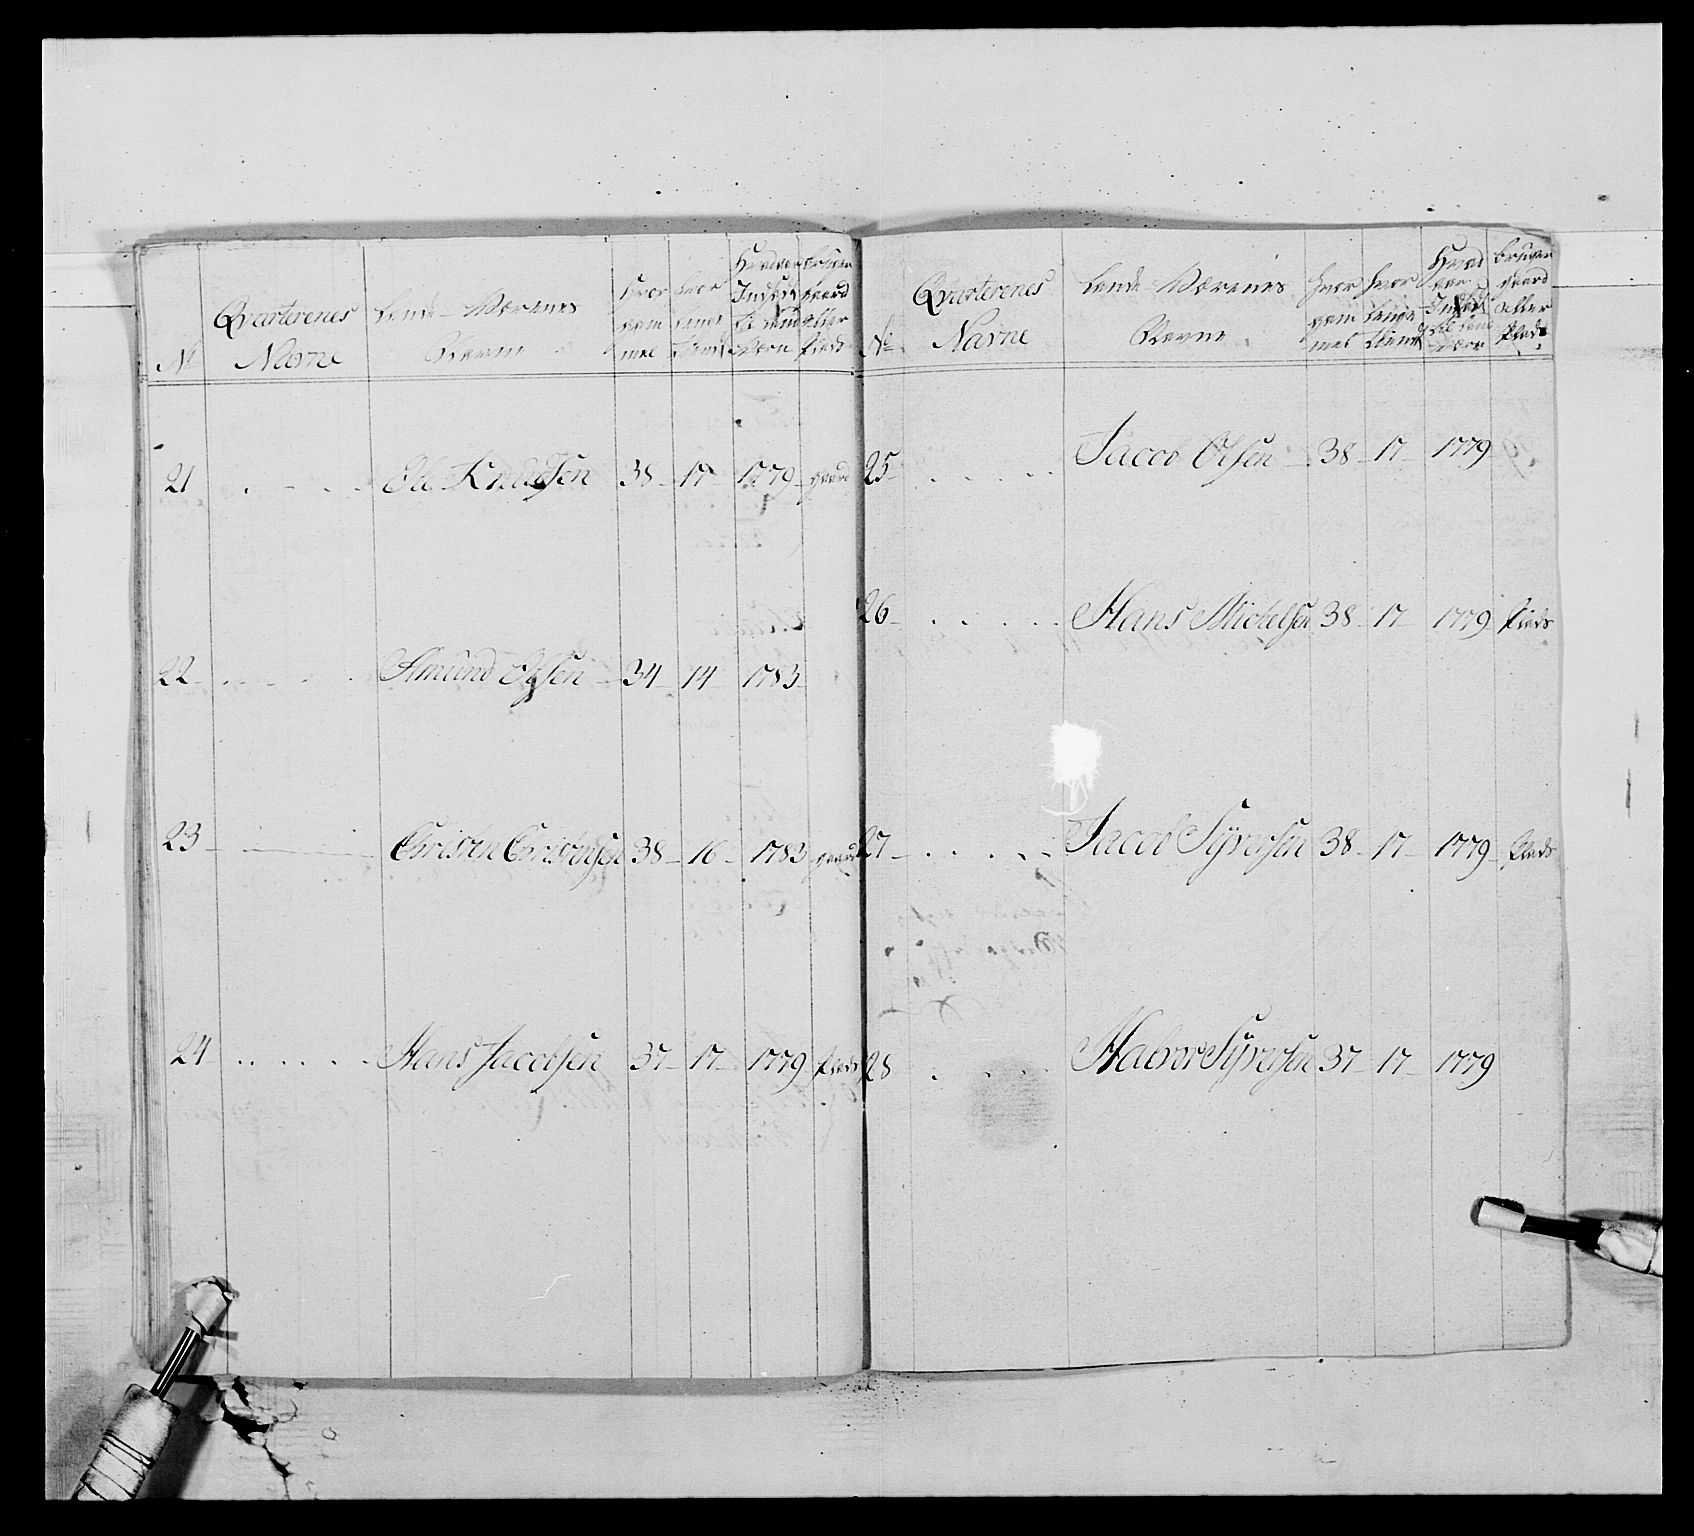 No
Qvarterenes
Navne
Lande-Værenes
Navne
Hvor
gam
mel
Hvor
Længe
tient
Hvad aar
Indsat
til Land
Værn
bruger
gaard
eller
Plads
21 Ole Knudsen 38 17 1779 gaard
22 Amund Olsen 34 14 1783
23 Christen Christensen 38 16 1783 gaard
24 Hans Jacobsen 37 17 1779 Plads
No
Qvarterenes
Navne
Lande Værenes
Navne
Hvor
gam
mel
Hvor
Længe
tient
Hvad
aar
Indsat
til Land
Værn
bruger
gaard
eller
Plads
25 Jacob Olsen 38 17 1779
26 Hans Michelsen 38 17 1779 Plads
27 Jacob Syversen 38 17 1779 Plads
28 Halvor Syversen 37 17 1779